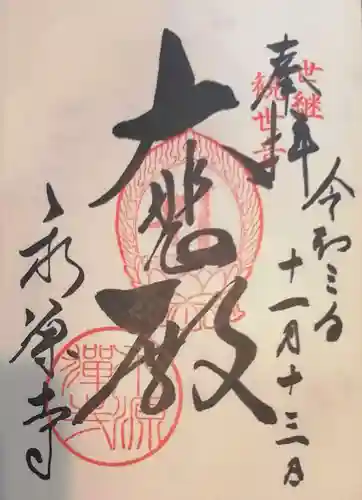 世継
観世音
奉拝
令和三年
十一月十三日
大悲殿
永源寺
永源
禅寺